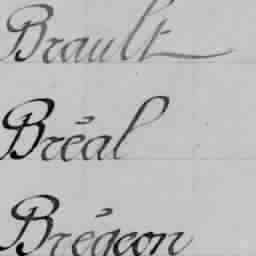 Brault
Bréal
Brégeon